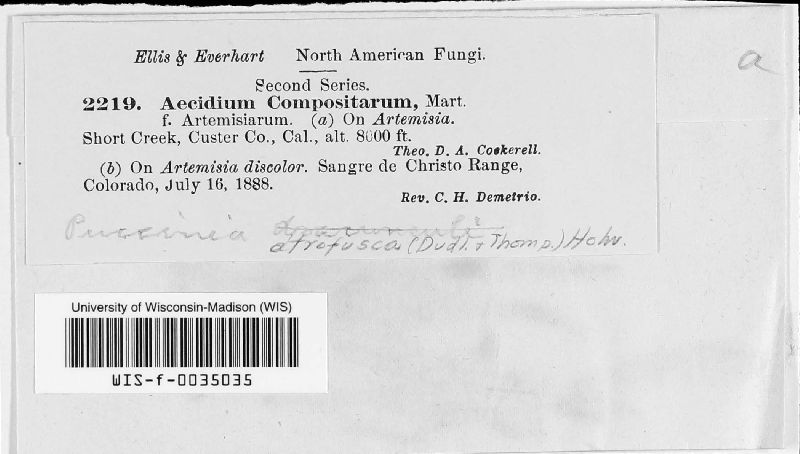 Ellis & Everhart North American Fungi.
a
Second Series.
2219. Aecidium Compositarum, Mart.
f. Artemisiarum. (a) On Artemisia.
Short Creek, Custer Co., Cal., alt. 8000 ft.
Theo. D. A. Cockerell.
(b) On Artemisia discolor. Sangre de Christo Range,
Colorado, July 16, 1888.
Rev. C. H. Demetrio.
Puccinia dracunculi
atrofusca (Dudl. & Thomp.) Holw.
University of Wisconsin-Madison (WIS)
WIS-f-0035035